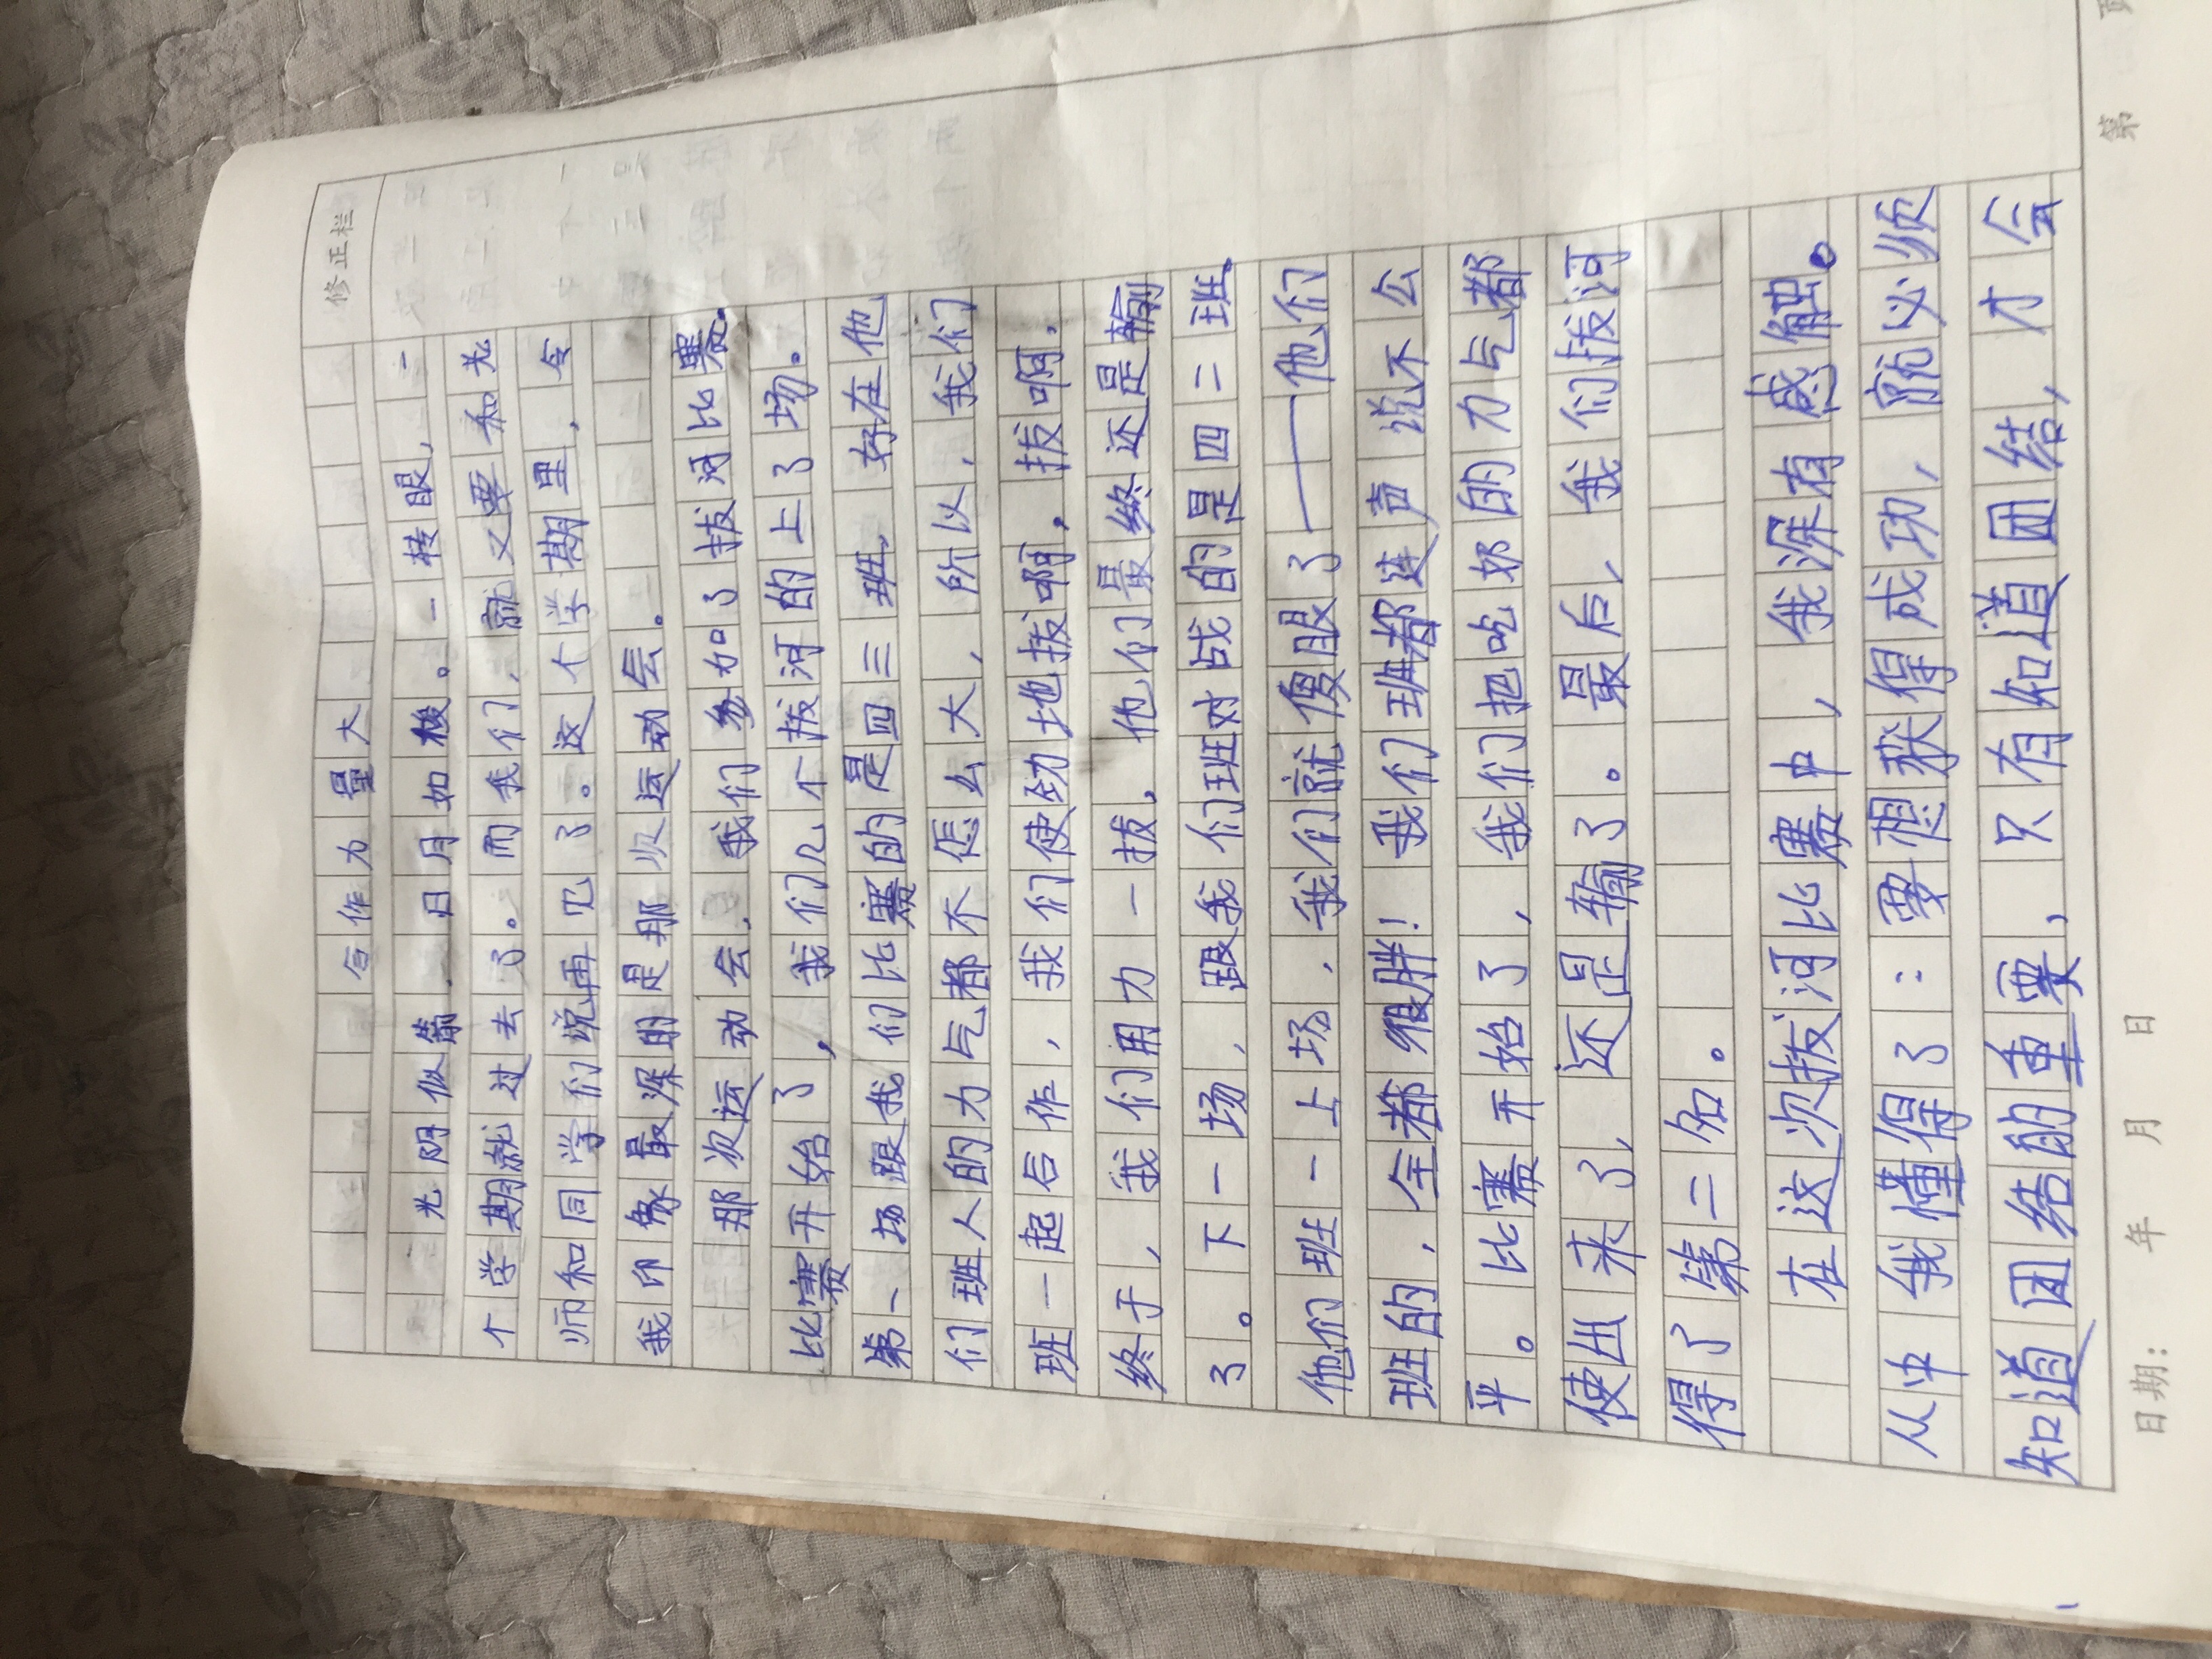 修正栏
合作力量大
光阴似箭，日月如梭。一转眼，一
个学期就过去了。而我们，就又要和老
师和同学们说再见了。这个学期里，令
我印象最深的是那次运动会。
那次运动会，我们参加了拔河比赛。
比赛开始了，我们几个拔河的上了场。
第一场跟我们比赛的是四三班，好在他
们班人的力气都不怎么大，所以，我们
班一起合作，我们使劲地拔啊，拔啊，
终于，我们用力一拔，他们最终还是输
了。下一场，跟我们班对战的是四二班。
他们班一上场，我们就傻眼了——他们
班的，全都很胖！我们班都连声说不公
平。比赛开始了，我们把吃奶的力气都
使出来了，还是输了。最后，我们拔河
得了第二名。
在这次拔河比赛中，我深有感触。
从中我懂得了：要想获得成功，就必须
知道团结的重要，只有知道团结，才会
日期： 年 月 日 第 页